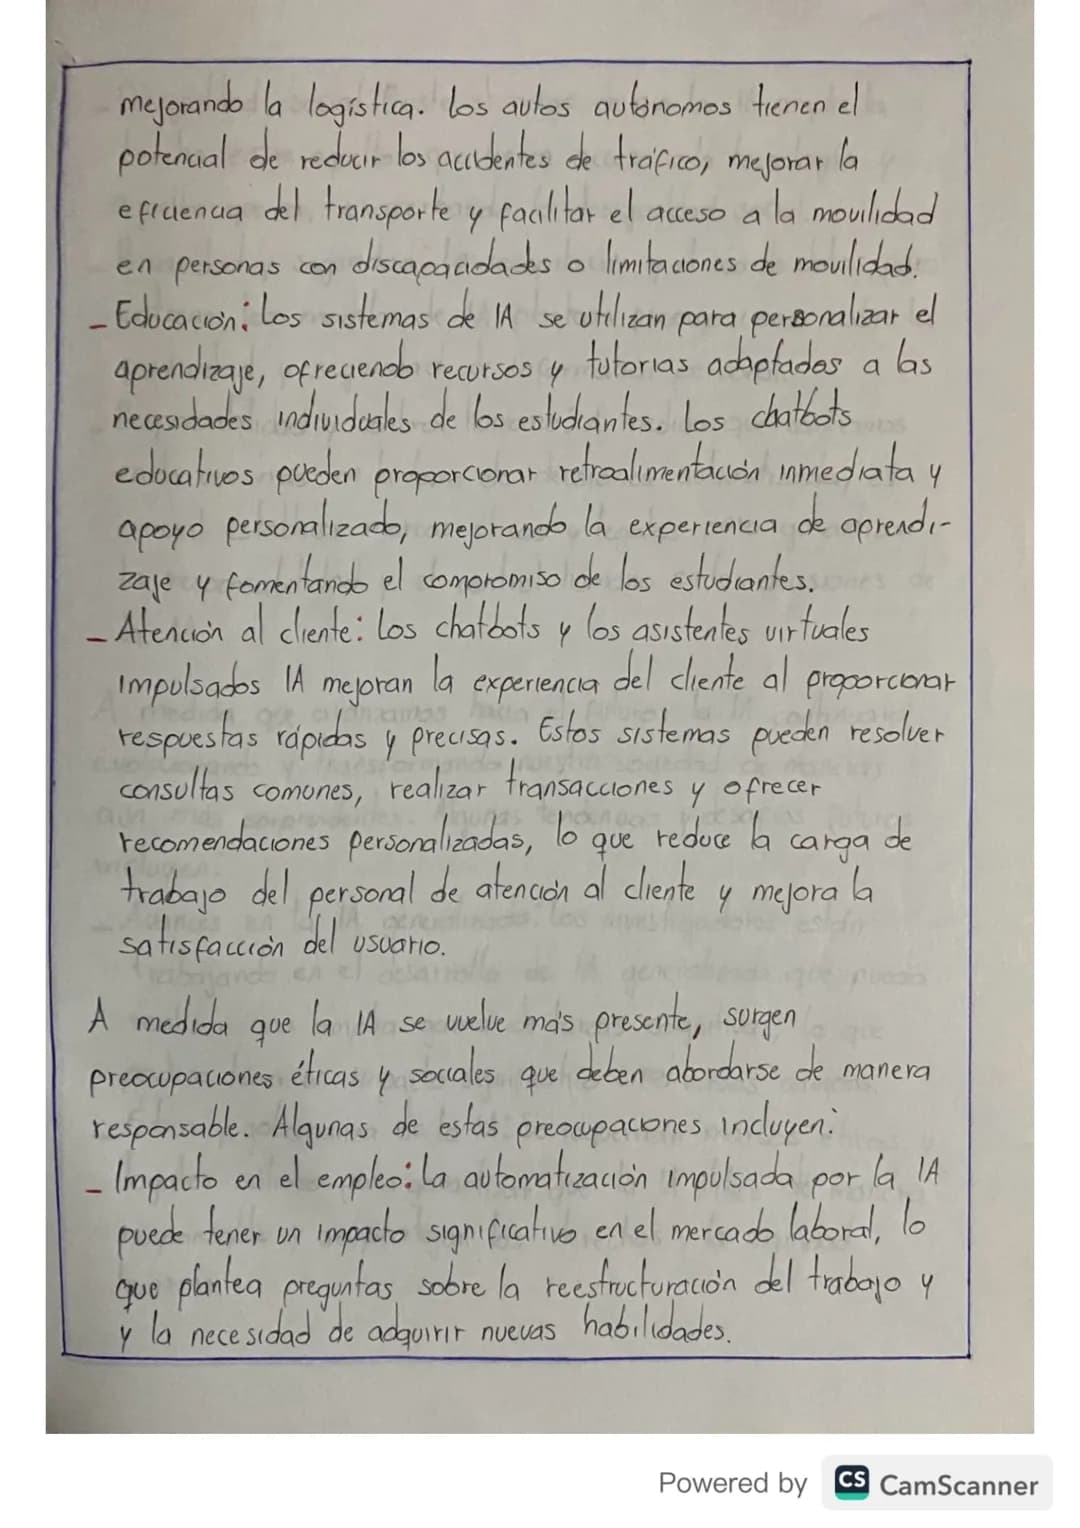 mejorando la logística. los autos autónomos tienen el
potencial de reducir los accidentes de tráfico, mejorar la
eficiencia del transporte y facilitar el acceso a la movilidad
en personas con discapacidades o limitaciones de movilidad.
- Educación: Los sistemas de IA se utilizan para personalizar el
aprendizaje, ofreciendo recursos y tutorias adaptados a las
necesidades individuales de los estudiantes. Los chatbots
educativos pueden proporcionar retroalimentación inmediata y
apoyo personalizado, mejorando la experiencia de aprendi-
zaje y fomentando el compromiso de los estudiantes.
- Atención al cliente: Los chatbots y los asistentes virtuales
impulsados IA mejoran la experiencia del cliente al proporcionar
respuestas rápidas y precisas. Estos sistemas pueden resolver
consultas comunes, realizar transacciones y ofrecer
recomendaciones personalizadas, lo que reduce la carga de
trabajo del personal de atención al cliente y mejora la
satisfacción del usuario.
A medida que la IA se vuelve más presente, surgen
preocupaciones éticas y sociales que deben abordarse de manera
responsable. Algunas de estas preocupaciones incluyen:
- Impacto en el empleo: La automatización impulsada por la IA
puede tener un impacto significativo en el mercado laboral, lo
que plantea preguntas sobre la reestructuración del trabajo y
y la necesidad de adquirir nuevas habilidades.
Powered by CS CamScanner